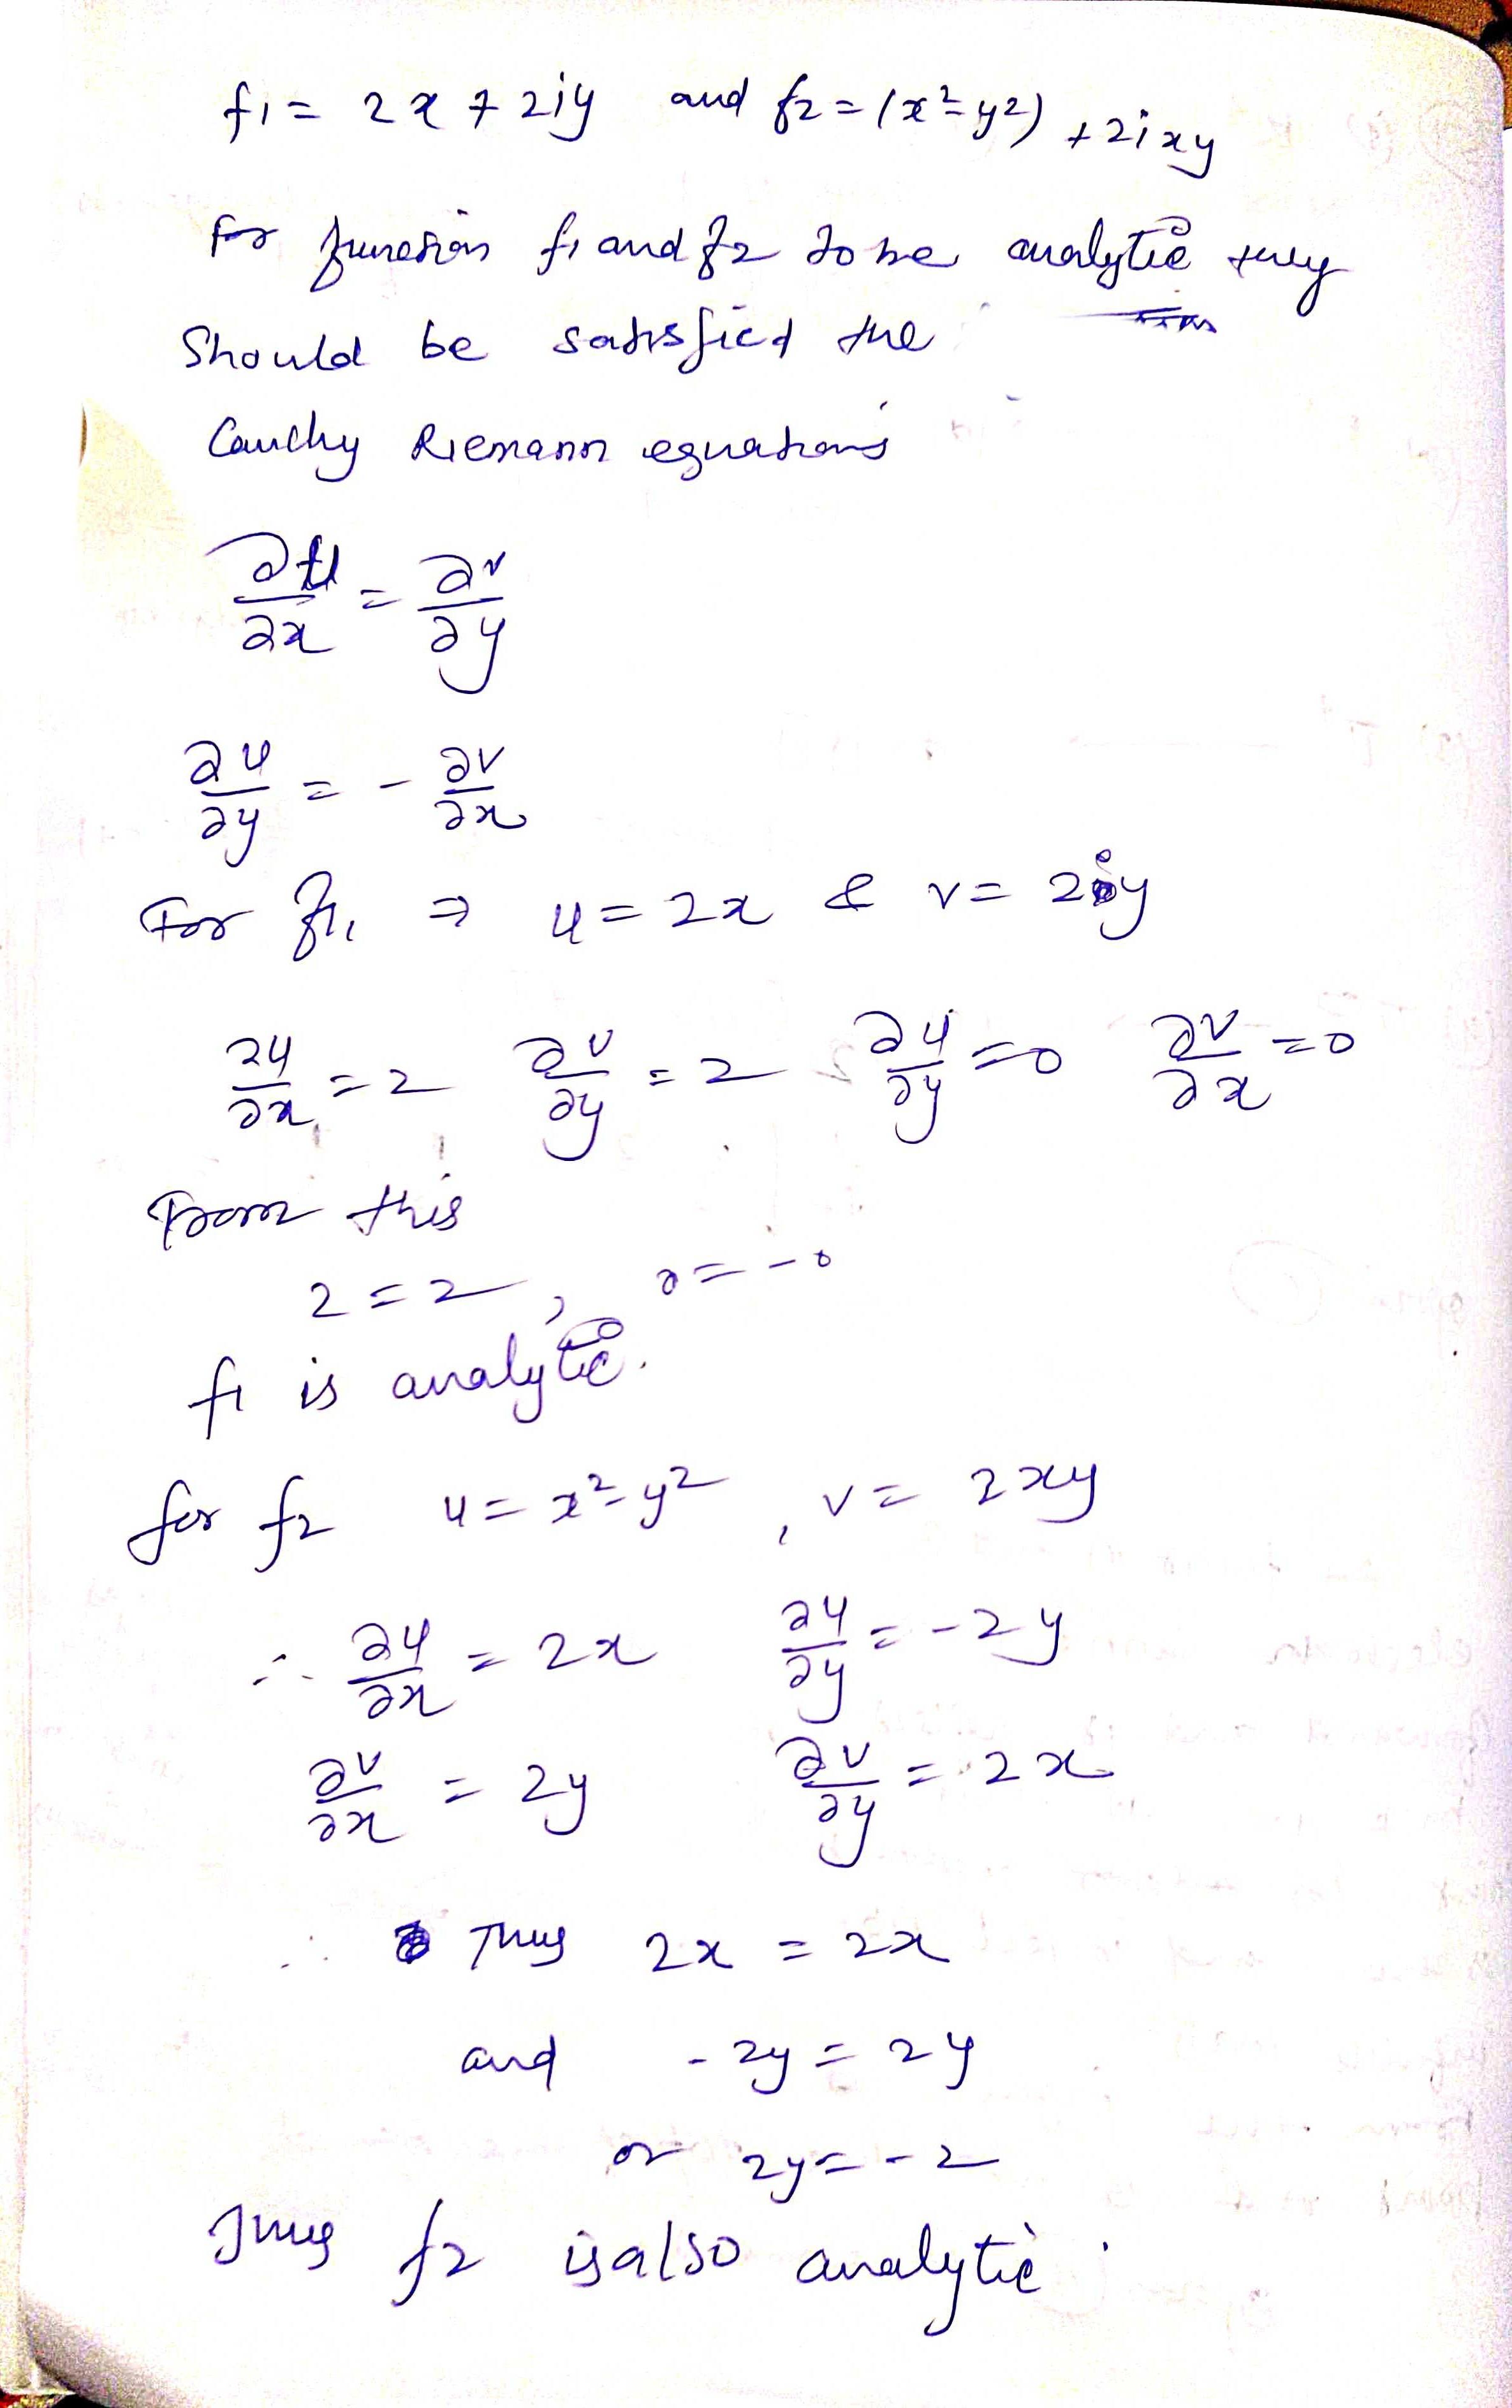 f1 = 2x + 2iy and f2 = (x² - y²) + 2ixy
For function f1 and f2 to be analytic they
Should be satisfied the
Cauchy Riemann equations
∂u/∂x = ∂v/∂y
∂u/∂y = - ∂v/∂x
For f1, ⇒ u = 2x & v = 2iy
∂u/∂x = 2 ∂v/∂y = 2 ∂u/∂y = 0 ∂v/∂x = 0
From this
2 = 2, 0 = -0
f1 is analytic.
for f2 u = x² - y², v = 2xy
∴ ∂u/∂x = 2x ∂u/∂y = -2y
∂v/∂x = 2y ∂v/∂y = 2x
∴ Thus 2x = 2x
and - 2y = 2y
or 2y = - 2
Thus f2 is also analytic.